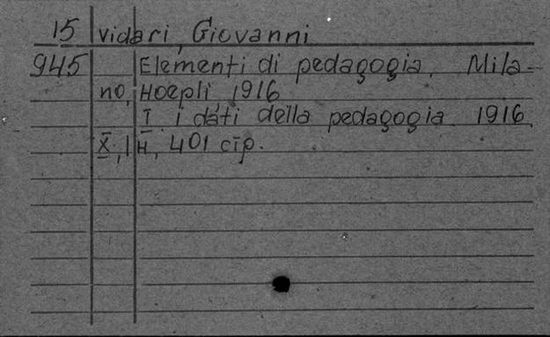 15 vidari, Giovanni
945 Elementi di pedagogia. Mila-
no, Hoepli 1916
I. i dati della pedagogia 1916.
X, 1 H, 401 стр.